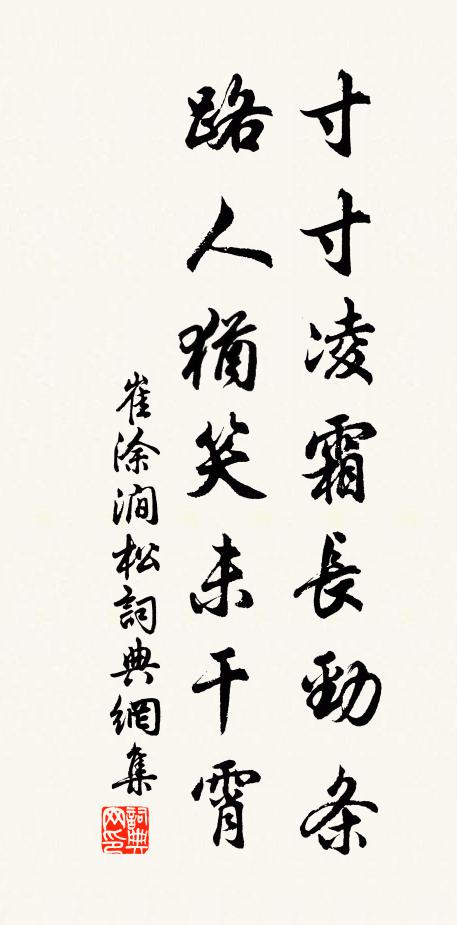 寸寸凌霜長勁条
路人猶笑未干霄
崔涂澗松詞典網集
詞典网印